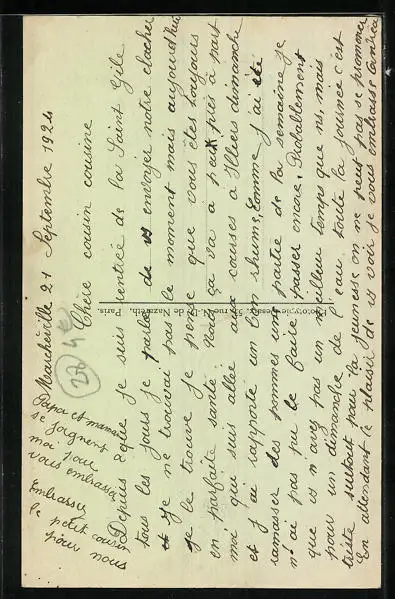 Marchéville 21 Septembre 1924
Chère cousin cousine
Depuis que je suis rentrée de la Saint Gile
tous les jours je parle de vs envoyer notre clocher
et je ne trouvrai pas le moment mais aujourd'hui
je le trouve je pense que vous êtes toujours
en parfaite santé Nous ça va à peux près à part
moi qui suis allée aux courses à Illiers dimanche
et j'ai rapporté un bon rhume, comme j'ai été
ramasser des pommes une partie de la semaine je
n'ai pas pu le faire passer encore. Probablement
que vs n'avez pas un meilleur temps que ns, mais
pour un dimanche de l'eau toute la journée c'est
triste surtout pour la jeunesse on ne peut pas se promener
En attendant le plaisir de vs voir je vous embrasse
Papa et maman
se joignent
moi pour
vous embrasser
Embrassez
le petit cousin
pour nous
Phototypie Desaix, rue N.-D. de Nazareth, Paris.
4€